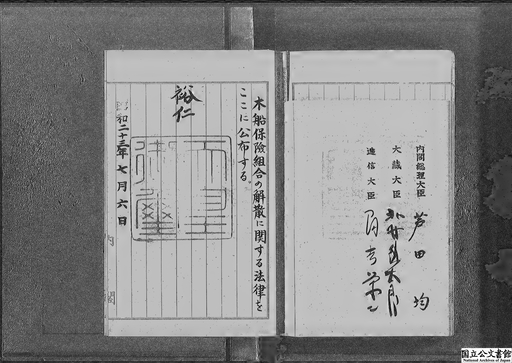 内閣総理大臣 芦田均
大藏大臣 北村徳太郎
逓信大臣 冨吉榮二
木船保險組合の解散に関する法律を
ここに公布する。
裕仁
天皇御璽
昭和二十三年七月六日
内閣
国立公文書館
National Archives of Japan